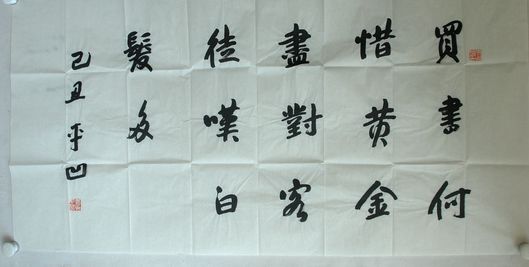 買書何
惜黄金
盡對客
徒嘆白
髮多
己丑平凹